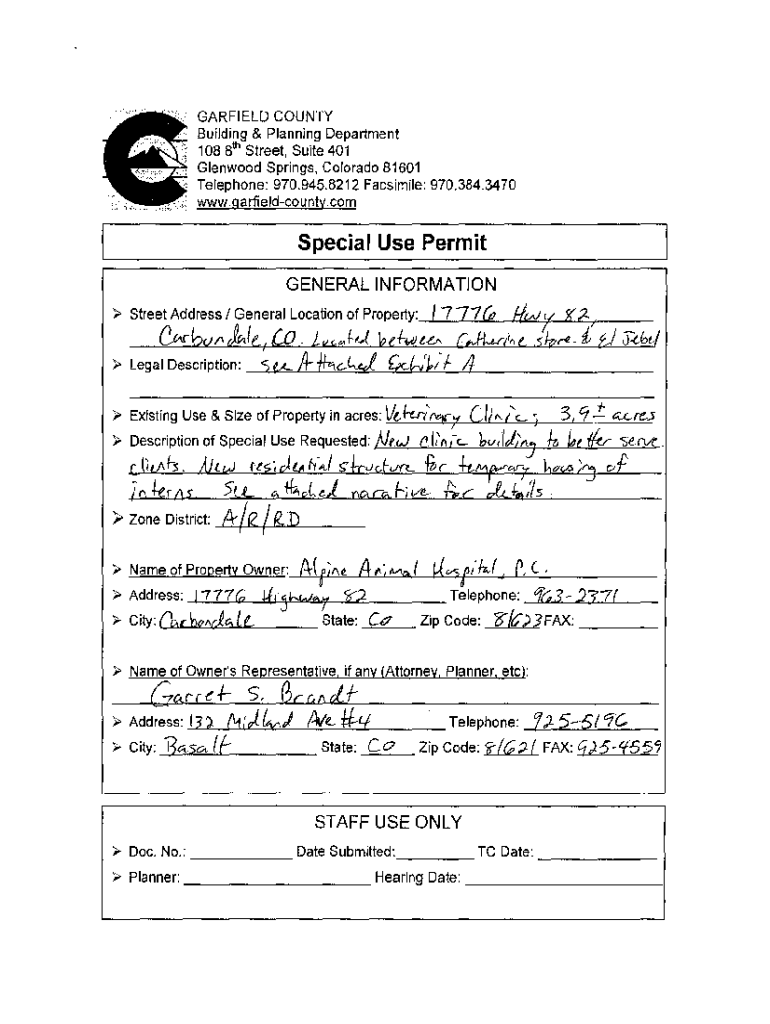 GARFIELD COUNTY
Building & Planning Department
108 8th Street, Suite 401
Glenwood Springs, Colorado 81601
Telephone: 970.945.8212 Facsimile: 970.384.3470
www.garfield-county.com
Special Use Permit
GENERAL INFORMATION
➢ Street Address / General Location of Property: 17776 Hwy 82
Carbondale, CO. Located between Catherine store & El Jebel
➢ Legal Description: See Attached Exhibit A
➢ Existing Use & Size of Property in acres: Veterinary Clinic; 3.9 ± acres
➢ Description of Special Use Requested: New clinic building to better serve
clients. New residential structure for temporary housing of
interns. See attached narative for details.
➢ Zone District: A/R/RD
➢ Name of Property Owner: Alpine Animal Hospital, P.C.
➢ Address: 17776 Highway 82 Telephone: 963-2371
➢ City: Carbondale State: CO Zip Code: 81623 FAX:
➢ Name of Owner's Representative, if any (Attorney, Planner, etc):
Garret S. Brandt
➢ Address: 132 Midland Ave #4 Telephone: 925-5196
➢ City: Basalt State: CO Zip Code: 81621 FAX: 925-4559
STAFF USE ONLY
➢ Doc. No.: Date Submitted: TC Date:
➢ Planner: Hearing Date: